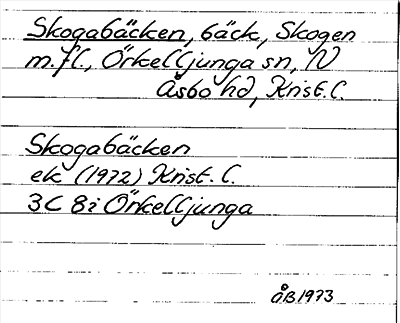 Skogabäcken, bäck, Skogen
m.fl., Örkelljunga sn, N
Åsbo hd, Krist.l.
Skogabäcken
ek (1972) Krist. l.
3C 8i Örkelljunga
ÅB1973